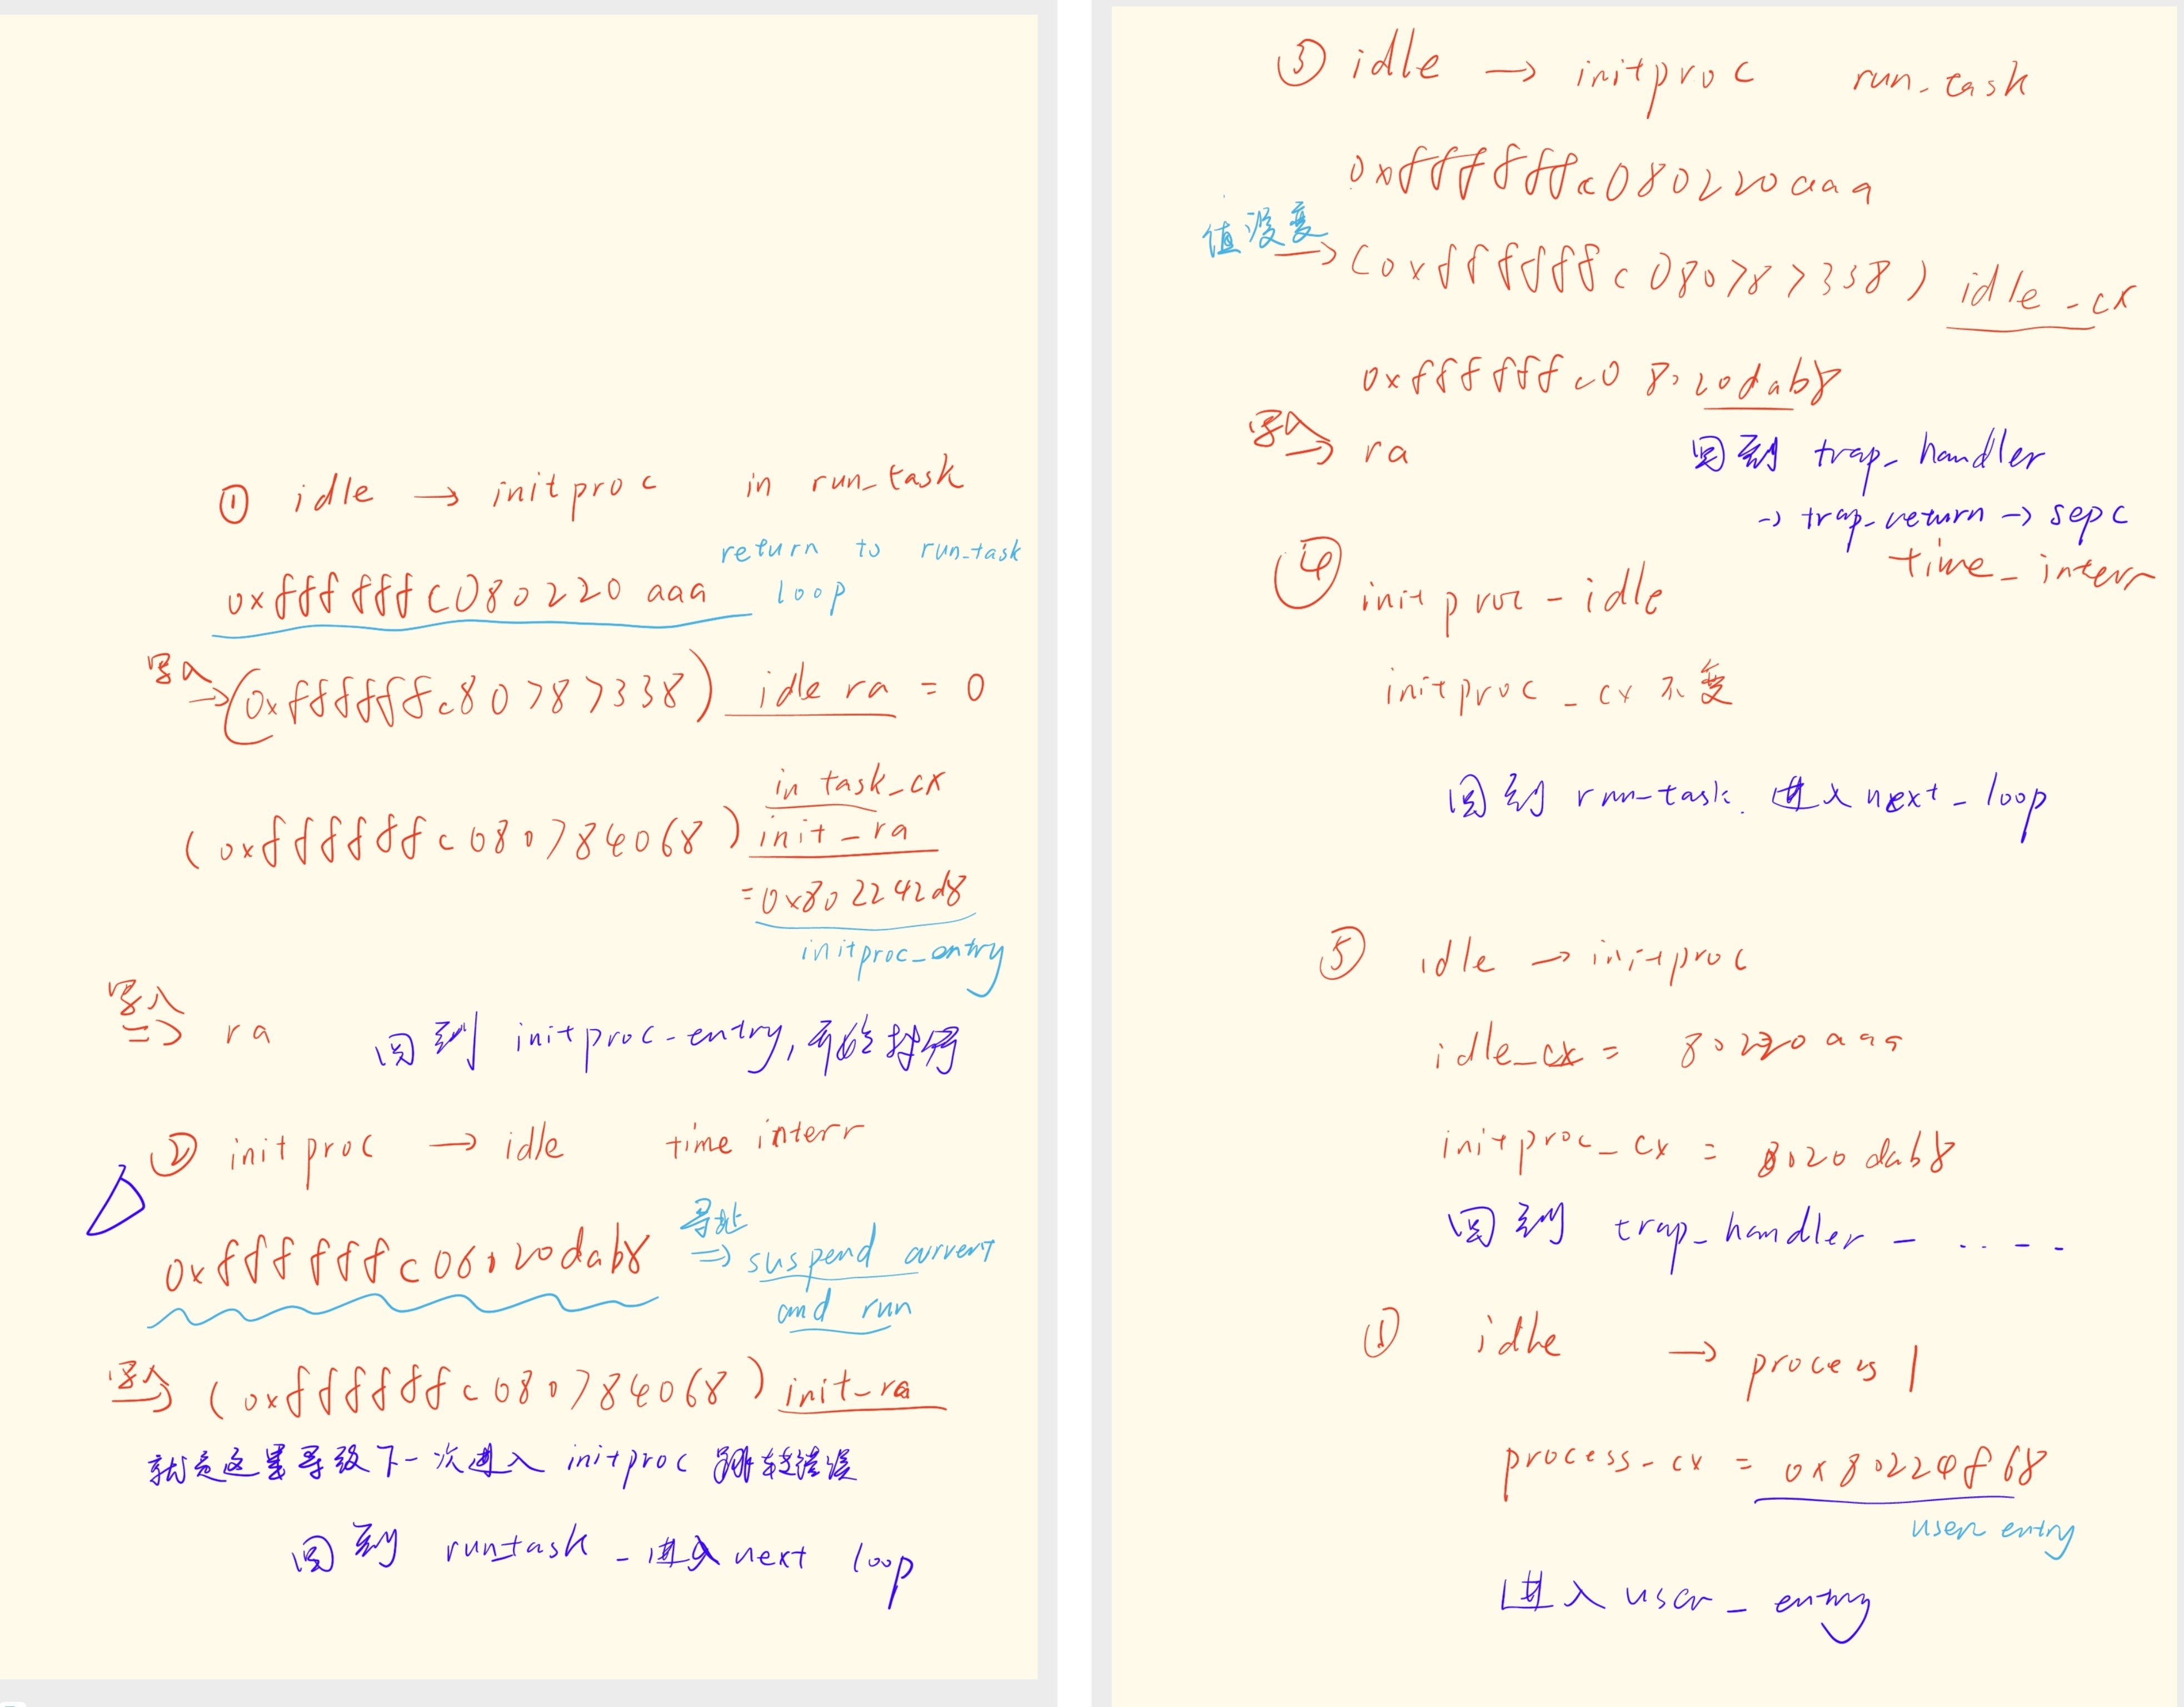 ① idle → initproc in run_task
return to run_task
0xffffffc080220aaa loop
写入
→(0xffffffc80787338) idle ra = 0
in task_cx
(0xffffffc080784068) init_ra
=0x802242d8
initproc_entry
写入
=> ra 回到 initproc-entry, 开始执行
② initproc → idle time interr
寻址
0xffffffc06020dab8 => suspend current
and run
写入
=> (0xffffffc080784068) init_ra
就是这里导致下一次进入 initproc 跳转错误
回到 runtask - 进入 next loop
③ idle → initproc run_task
0xffffffc080220aaa
值没变
→ (0xffffffc080787338) idle_cx
0xffffffc08020dab8
写入
→ ra 回到 trap_handler
-> trap_return → sepc
④ time_interr
initproc - idle
initproc_cx 不变
回到 run_task. 进入 next_loop
⑤ idle → initproc
idle_cx = 80220aaa
initproc_cx = 8020dab8
回到 trap_handler - ....
① idle → process 1
process_cx = 0x80224f68
user entry
进入 user_entry